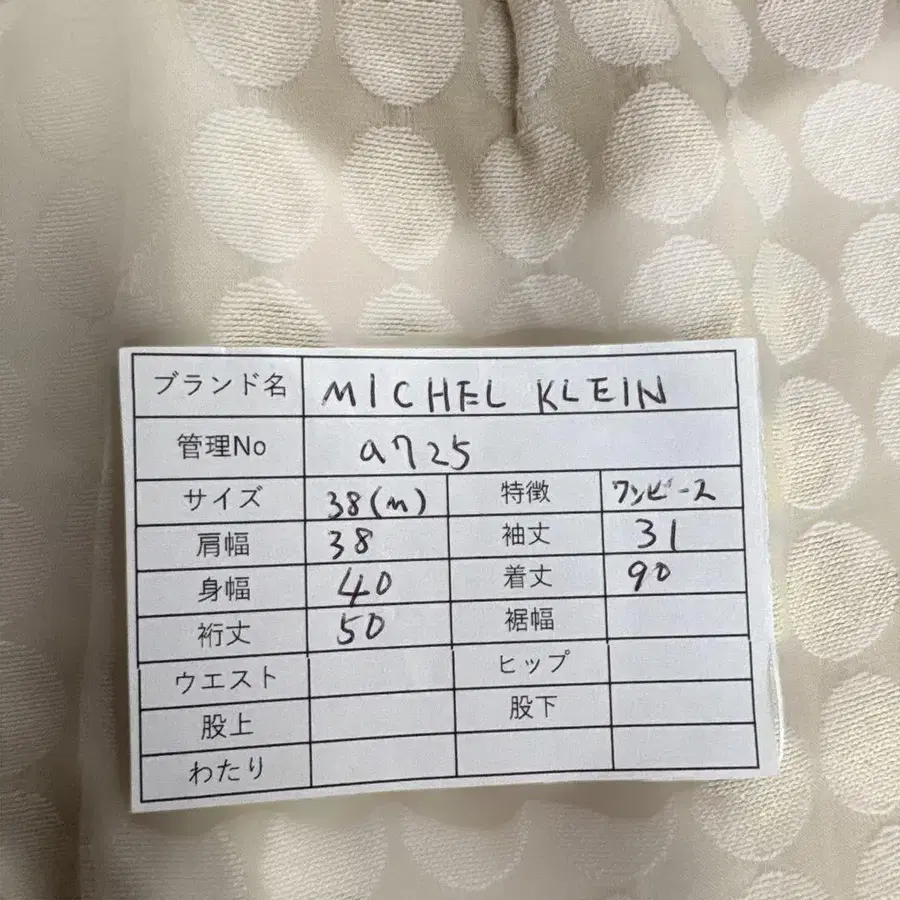 ブランド名 MICHEL KLEIN
管理No a725
サイズ 38(m) 特徴 ワンピース
肩幅 38 袖丈 31
身幅 40 着丈 90
裄丈 50 裾幅
ウエスト ヒップ
股上 股下
わたり